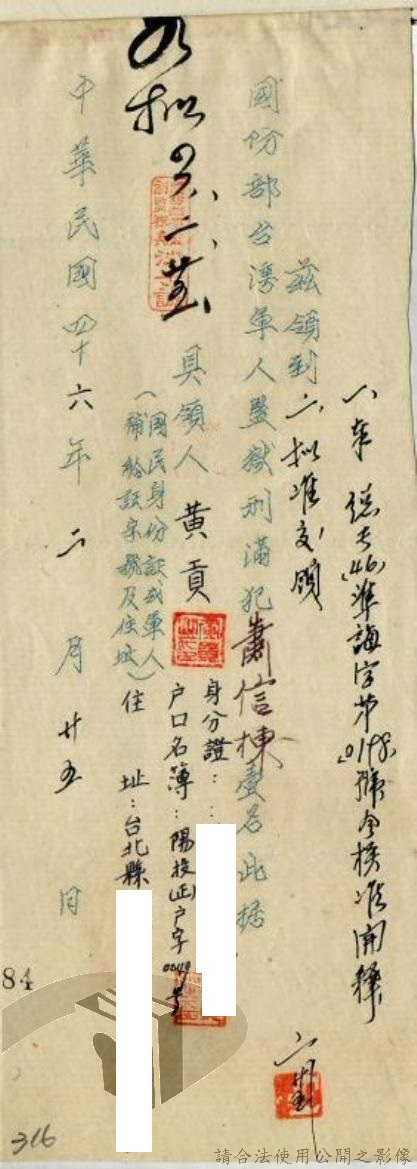 一、奉總長(46)準誨字第0198號令核准開釋
二、拟准交領
茲領到
國防部台灣軍人監獄刑滿犯蕭信棟壹名此據
身分證：
戶口名簿：陽投(正)戶字0049號
住址：台北縣
具領人 黃貢
(國民身份証或軍人
補給証字號及住址)
如拟
中華民國四十六年二月廿五日
84
316
請合法使用公開之影像